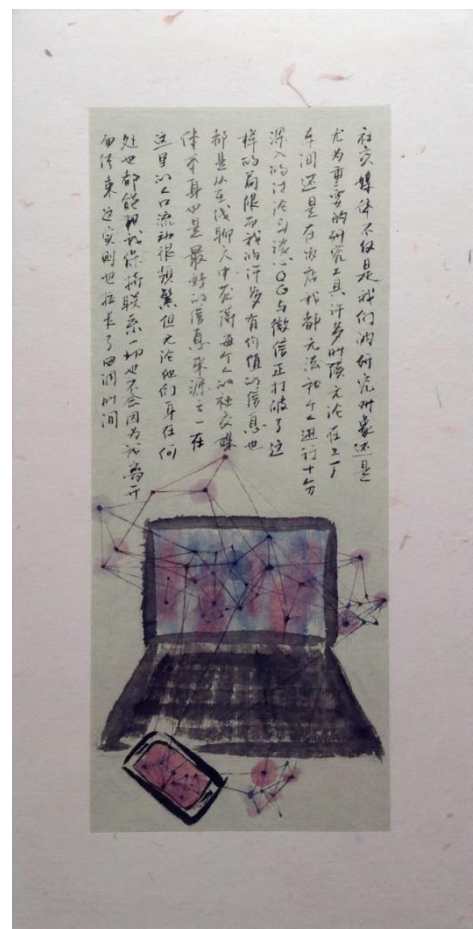 社交媒体不仅是我们的研究对象还是
尤为重要的研究工具许多时候无论在工厂
车间还是在饭店我都无法和个人进行十分
深入的讨论与谈心QQ与微信正打破了这
样的局限而我的许多有价值的信息也
都是从在线聊天中获得每个人的社交媒
体本身也是最好的信息来源之一在
这里的人口流动很频繁但无论他们身在何
处也都能和我保持联系一切也不会因为我离开
而结束这实则也拉长了田调时间